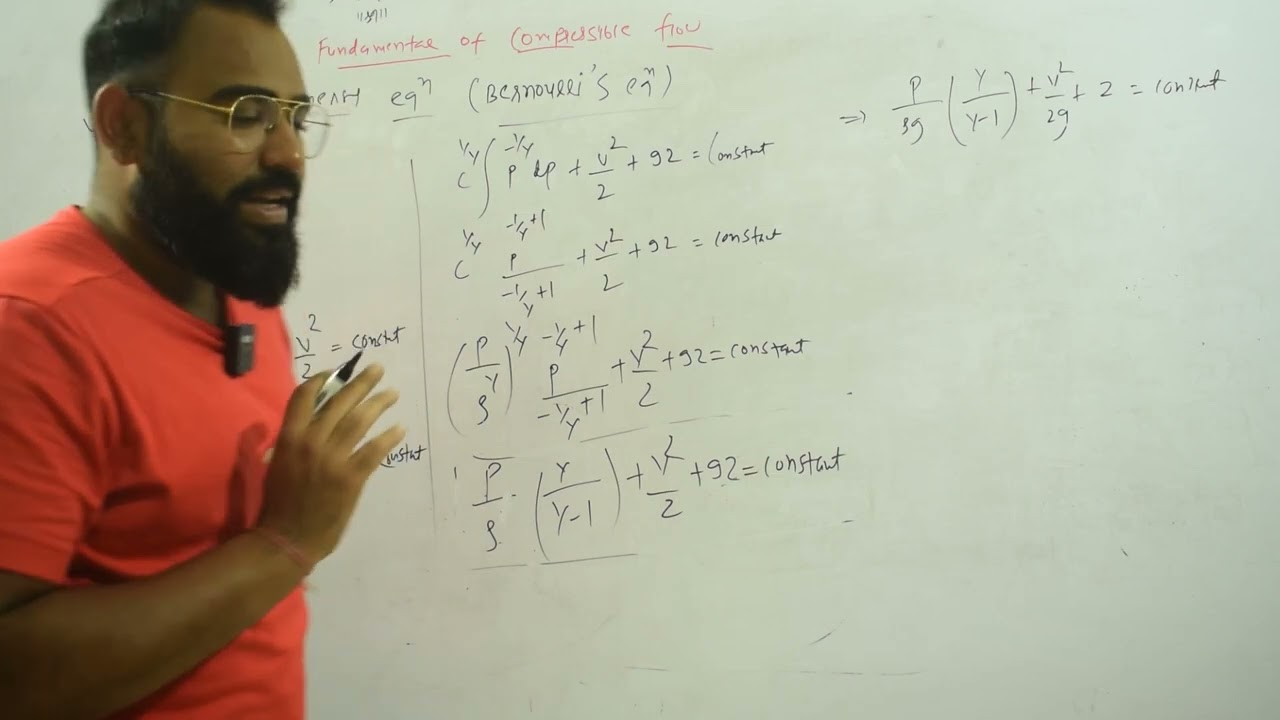 Fundamental of Compressible flow
eqⁿ (Bernoulli's eqⁿ)
C^(1/γ) ∫ P^(-1/γ) dp + v²/2 + gz = Constant
C^(1/γ) P^(-1/γ+1) / (-1/γ+1) + v²/2 + gz = constant
(P/ρ^γ)^(1/γ) P^(-1/γ+1) / (-1/γ+1) + v²/2 + gz = constant
P/ρ · (γ/(γ-1)) + v²/2 + gz = constant
v²/2 = constnt
⇒ P/ρg (γ/(γ-1)) + v²/2g + z = constant